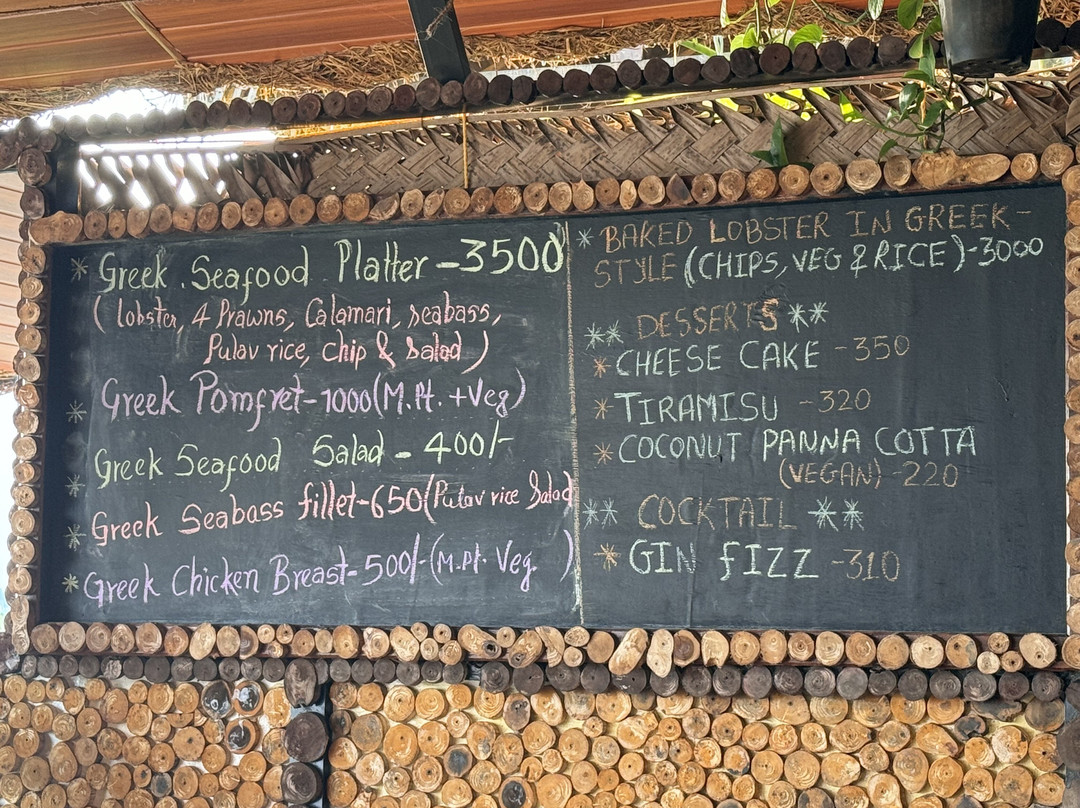 * Greek Seafood Platter - 3500
( lobster, 4 Prawns, Calamari, seabass,
Pulav rice, chip & Salad )
* Greek Pomfret - 1000 (M.Pt. + Veg)
* Greek Seafood Salad - 400/-
* Greek Seabass fillet - 650 (Pulav rice Salad
* Greek Chicken Breast - 500/- (M.Pt. Veg. )
* BAKED LOBSTER IN GREEK -
STYLE (CHIPS, VEG & RICE) - 3000
** DESSERTS **
* CHEESE CAKE - 350
* TIRAMISU - 320
* COCONUT PANNA COTTA
(VEGAN) - 220
** COCKTAIL **
* GIN FIZZ - 310